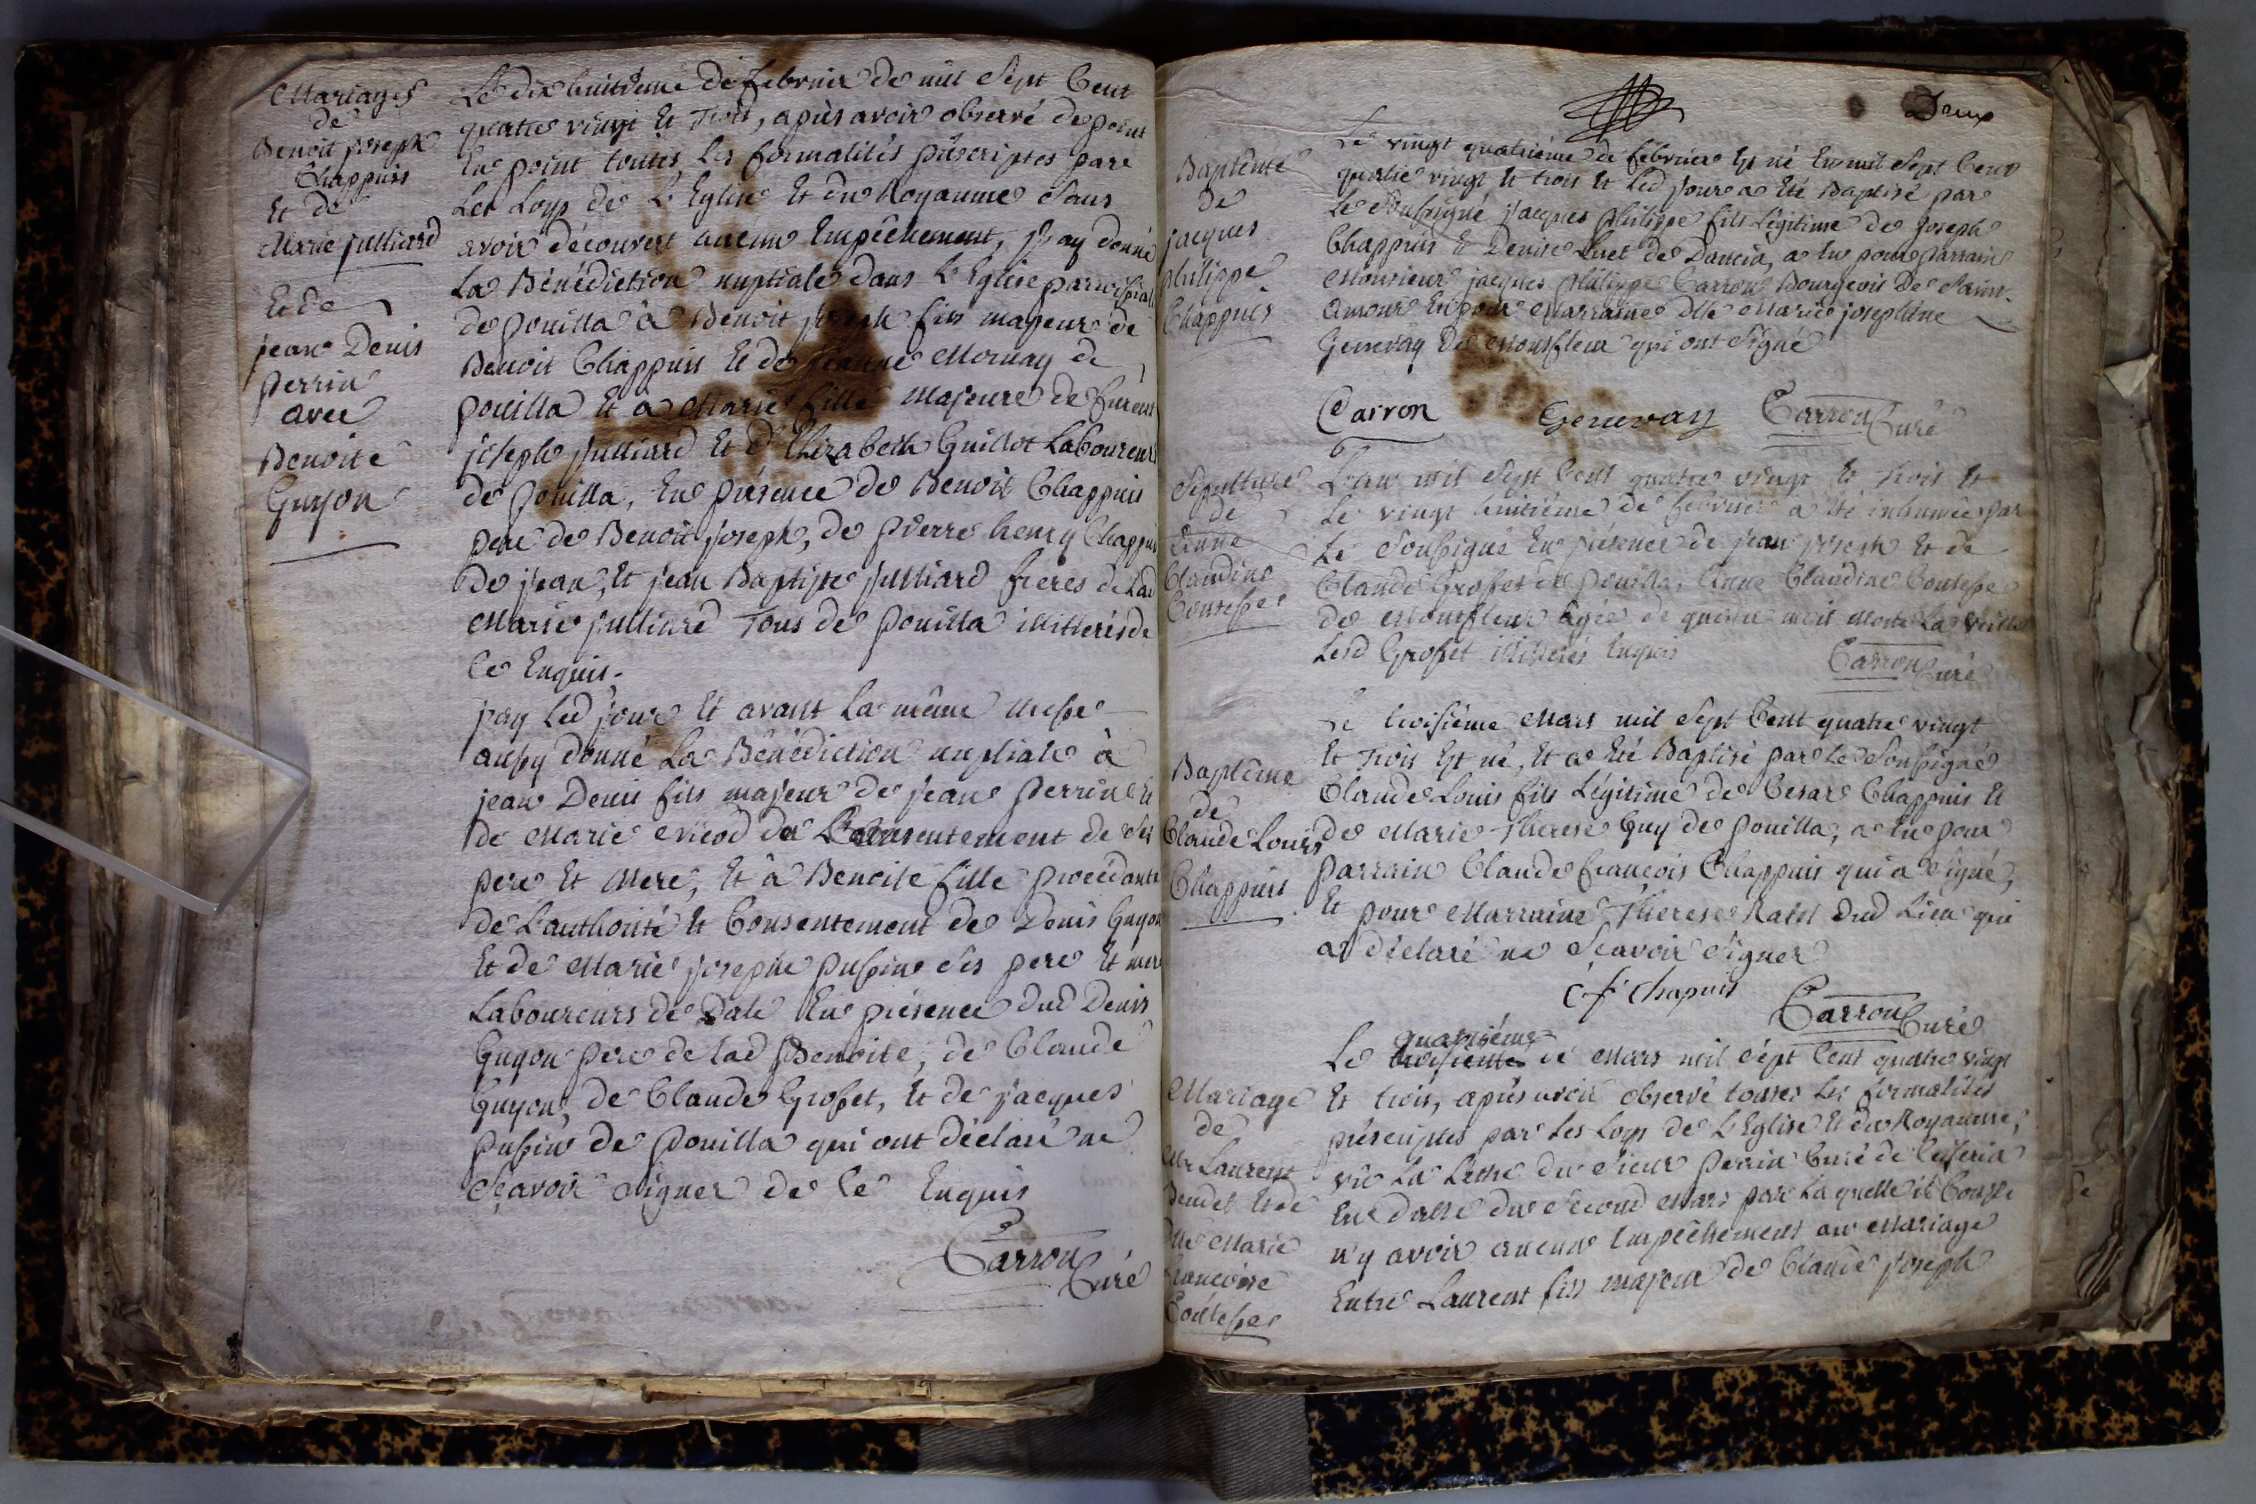 Mariages
de
Benoit joseph
Chappuis
Et de
Marie julliard
Et de
jean Denis
perrin
avec
Benoite
Guyon
Le dix huitieme de fevrier de mil Sept Cent
quatre vingt Et Trois, après avoir observé de point
En point toutes Les formalités préscriptes par
Les Loys de L'Eglise Et du Royaume Sans
avoir découvert aucun Empêchement, j'ay donné
La Bénédiction nuptiale dans L'Eglise parroissial
de pouilla à Benoit joseph fils majeur de
Benoit Chappuis Et de jeanne Mornay de
pouilla Et à Marie fille majeure de furent
joseph julliard Et d'Elizabeth Guillot Laboureurs
de pouilla, En présence de Benoit Chappuis
pere de Benoit joseph, de pierre henry Chappuis
de jean, Et jean Baptiste julliard freres de Lad
Marie julliard Tous de pouilla illitterés de
Ce Enquis.
j'ay Led jour Et avant La même messe
aussy donné La Bénédiction nuptiale à
jean Denis fils majeur de jean perrin Et
de Marie Nicod du Consentement de ses
pere Et Mere, Et à Benoite fille procédante
de L'authorité Et Consentement de Denis Guyon
Et de Marie josephe pussin ses pere Et mere
Laboureurs de Dale En présence dud Denis
Guyon pere de lad Benoite, de Claude
Guyon, de Claude Grosset, Et de jacques
pussin de pouilla qui ont déclaré ne
Sçavoir signer de Ce Enquis
Carron
Curé
Deux
Baptême
de
jacques
philippe
Chappuis
Le vingt quatrième de fevrier Est né En mil Sept Cent
quatre vingt Et trois Et Led jour a Eté Baptisé par
Le Soussigné jacques philippe fils Légitime de joseph
Chappuis Et Denise Buet de Dancia, a Eu pour parrain
Monsieur jacques philippe Carron Bourgeois de Saint-
Amour Et pour Marraine Dlle Marie josephine
Genevay de Monsfleur qui ont Signé
Carron Genevay Carron Curé
Sépulture
de
Anne
Claudine
Contesse
L'an mil Sept Cent quatre vingt Et Trois Et
Le vingt huitième de fevrier a Eté inhumée par
Le Soussigné En présence de jean joseph Et de
Claude Grosset de pouilla, Anne Claudine Contesse
de Monsfleur agée de quatre mois morte La veille
Lesd Grosset illitterés Enquis
Carron Curé
Baptême
de
Claude Louis
Chappuis
Le troisième Mars mil Sept Cent quatre vingt
Et Trois Est né, Et a Eté Baptisé par Le Soussigné
Claude Louis fils Légitime de Cesar Chappuis Et
de Marie Therese Guy de pouilla, a Eu pour
parrain Claude françois Chappuis qui a Signé,
Et pour Marraine Therese Ratel dud Lieu qui
a déclaré ne Sçavoir Signer
C f Chapuis
Carron Curé
Mariage
de
Laurent
Et de
Dlle Marie
françoise
Contesse
quatrième
Le troisième de Mars mil Sept Cent quatre vingt
Et trois, après avoir observé toutes Les formalités
préscriptes par Les Loys de L'Eglise Et du Royaume,
vû La Lettre du Sieur perrin Curé de Cuiseria
En datte du Second Mars par Laquelle il Conste
n'y avoir aucun Empêchement au Mariage
Entre Laurent fils majeur de Claude joseph